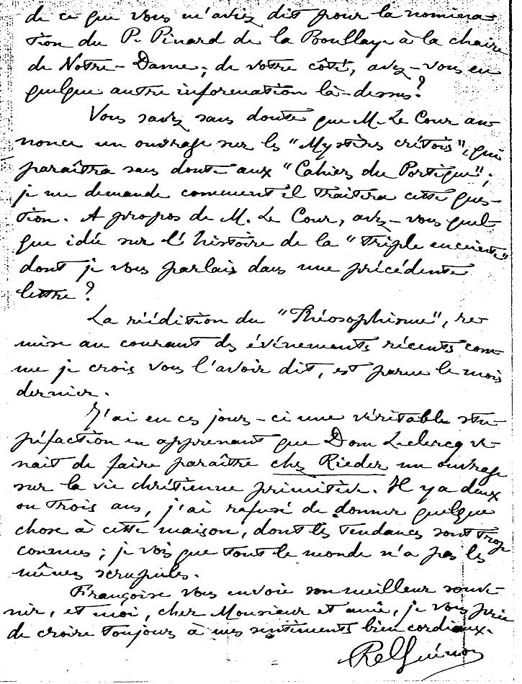 de ce que vous m'avez dit pour la nomina-
tion du P. Pinard de la Boullaye à la chaire
de Notre-Dame; de votre côté, avez-vous eu
quelque autre information là-dessus?
Vous savez sans doute que M. Le Cour an-
nonce un ouvrage sur les "Mystères crétois", qui
paraîtra sans doute aux "Cahiers du Portique";
je me demande comment il traitera cette ques-
tion. A propos de M. Le Cour, avez-vous quel-
que idée sur l'histoire de la "triple enceinte"
dont je vous parlais dans une précédente
lettre?
La réédition du "Théosophisme", re-
mise au courant des événements récents com-
me je crois vous l'avoir dit, est parue le mois
dernier.
J'ai eu ces jours-ci une véritable stu-
péfaction en apprenant que Dom Leclercq ve-
nait de faire paraître chez Rieder un ouvrage
sur la vie chrétienne primitive. Il y a deux
ou trois ans, j'ai refusé de donner quelque
chose à cette maison, dont les tendances sont trop
connues; je vois que tout le monde n'a pas les
mêmes scrupules.
Françoise vous envoie son meilleur souve-
nir, et moi, cher Monsieur et ami, je vous prie
de croire toujours à mes sentiments bien cordiaux.
René Guénon